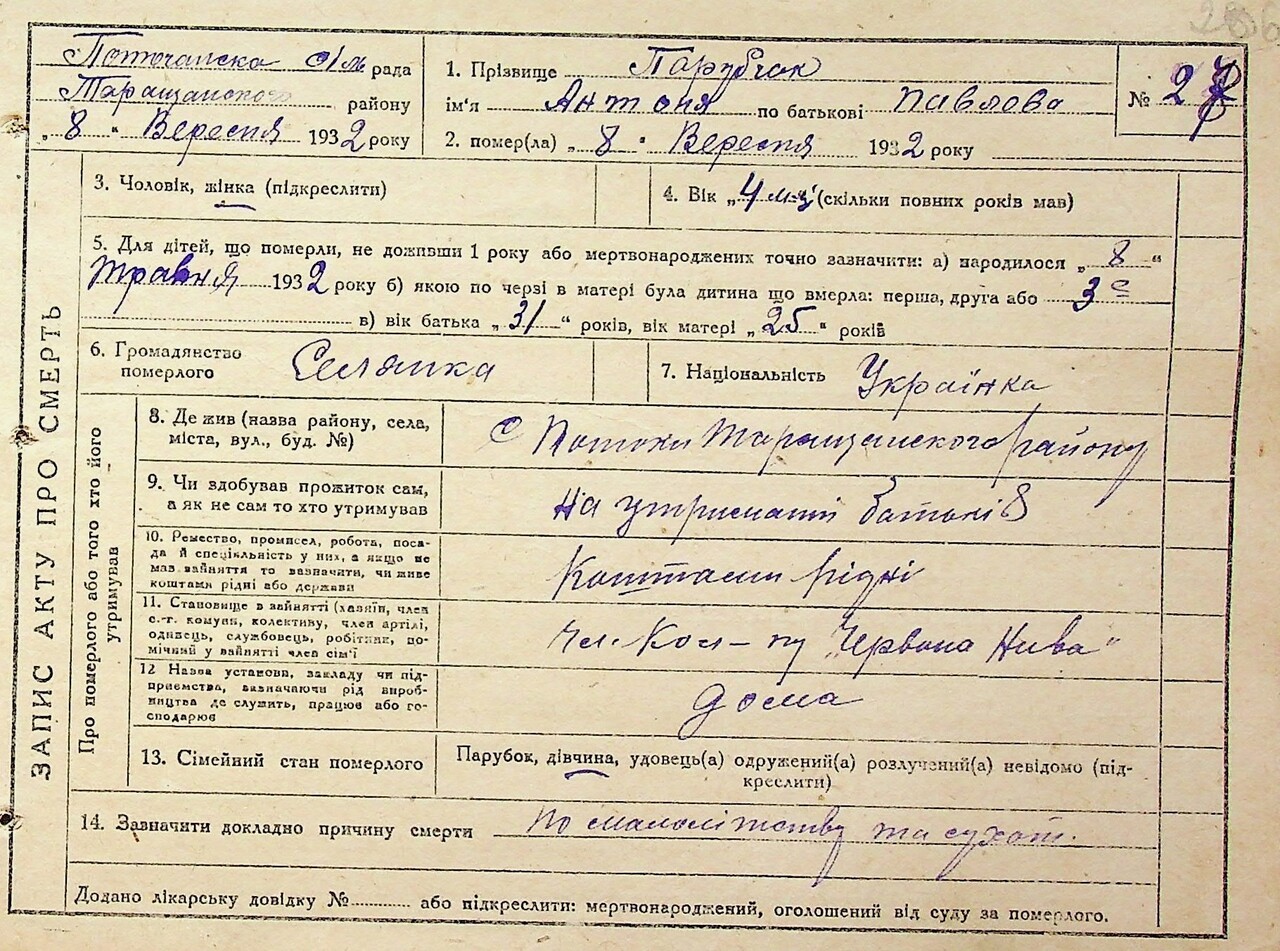 Поточанска с/м рада
Таращанского району
„8" Вересня 1932 року
1. Прізвище Парубчак
ім'я Антоня по батькові Павлова
2. помер(ла) „8" Вересня 1932 року
№ 27
3. Чоловік, жінка (підкреслити)
4. Вік „4 м-ці" (скільки повних років мав)
5. Для дітей, що померли, не доживши 1 року або мертвонароджених точно зазначити: а) народилося „8"
травня 1932 року б) якою по черзі в матері була дитина що вмерла: перша, друга або 3е
в) вік батька „31" років, вік матері „25" років
6. Громадянство
померлого
Селянка
7. Національність Українка
ЗАПИС АКТУ ПРО СМЕРТЬ
Про померлого або того хто його
утримував
8. Де жив (назва району, села,
міста, вул., буд. №)
с Потоки Таращанского району
9. Чи здобував прожиток сам,
а як не сам то хто утримував
На утриманні батьків
10. Ремество, промисел, робота, поса-
да й спеціяльність у них, а якщо не
мав зайняття то зазначити, чи живе
коштами рідні або держави
Коштами рідні
11. Становище в зайнятті (хазяїн, член
с.-г. комуни, колективу, член артілі,
одинець, службовець, робітник, по-
мічний у зайнятті член сім'ї
Чл. Кол-пу „Червона Нива"
12 Назва установи, закладу чи під-
приємства, визначаючи рід вироб-
ництва де служить, працює або го-
сподарює
дома
13. Сімейний стан померлого
Парубок, дівчина, удовець(а) одружений(а) розлучений(а) невідомо (під-
креслити)
14. Зазначити докладно причину смерти По малолітству та сухот.
Додано лікарську довідку №............ або підкреслити: мертвонароджений, оголошений від суду за померлого.